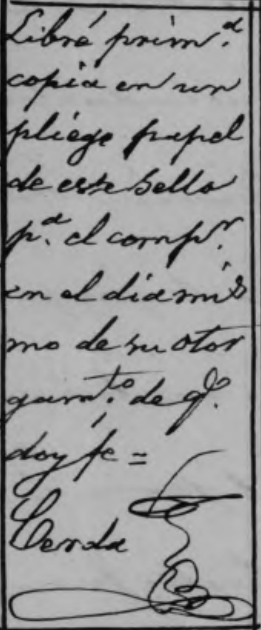 Libré prim.ª
copia en un
pliego papel
de este sello
p.ª el comp.r
en el dia mis
mo de su otor
gam.to de q.e
doy fe =
Cerda